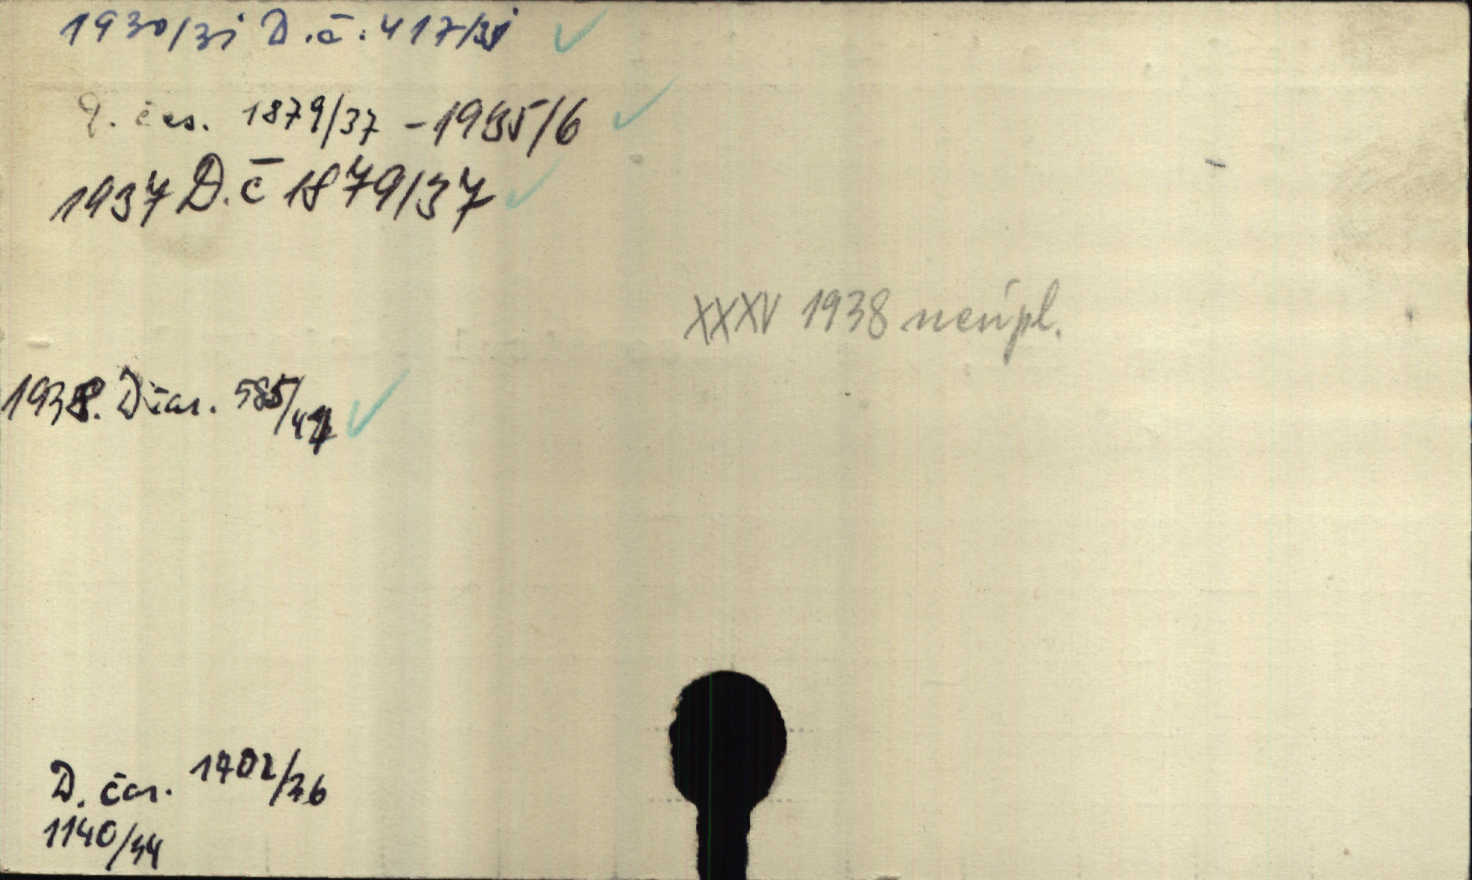 1930/31 D.č. 417/31
D. čas. 1879/37 - 1935/6
1937 D.č 1879/37
XXXV 1938 neúpl.
1938. D čas. 585/47
D. čas. 1702/36
1140/34